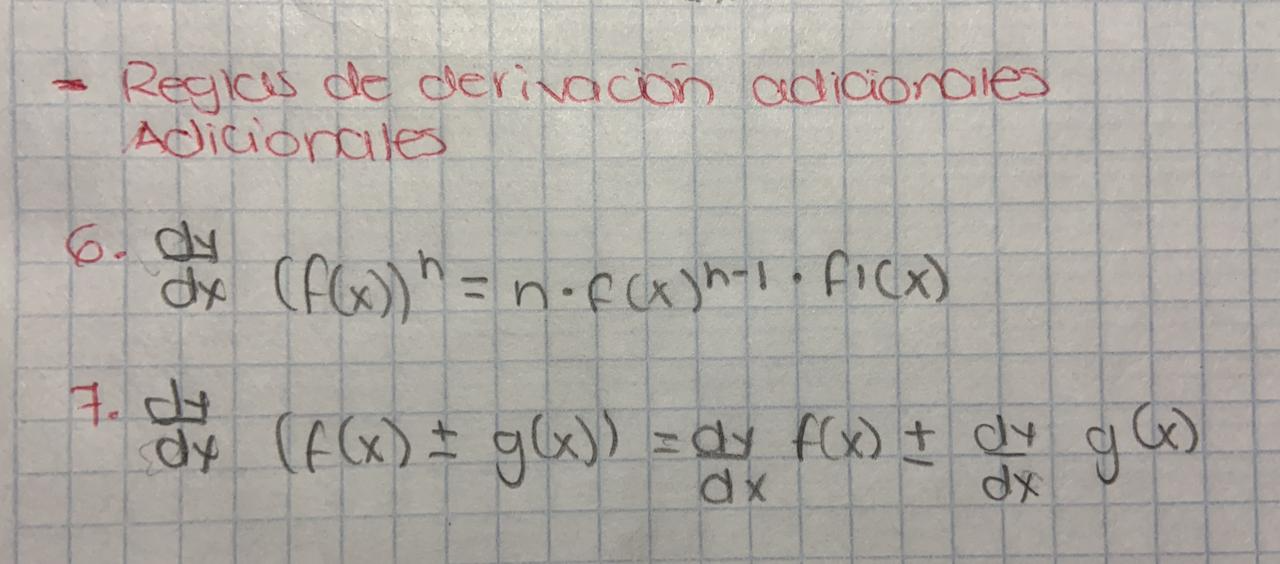 - Reglas de derivación adicionales
Adicionales
6. dy/dx (f(x))^n = n · f(x)^n-1 · f'(x)
7. dy/dx (f(x) ± g(x)) = dy/dx f(x) ± dy/dx g(x)